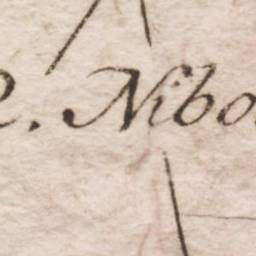 2. Nibo